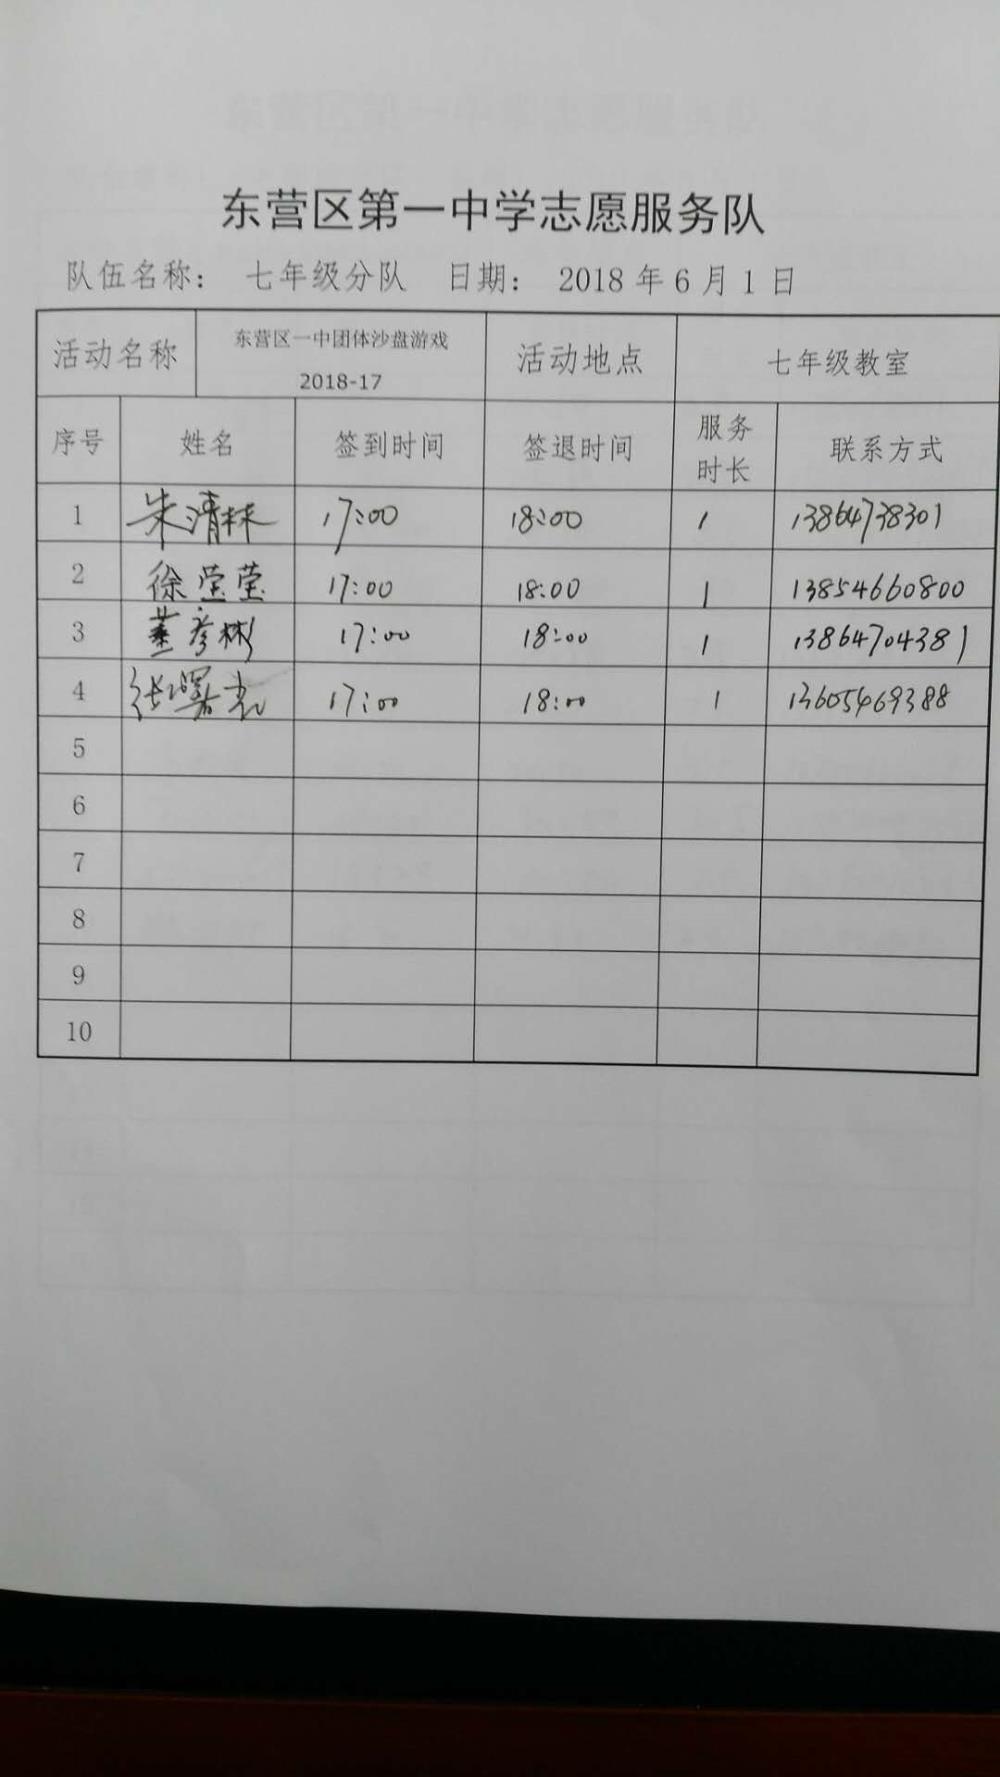 东营区第一中学志愿服务队
队伍名称： 七年级分队 日期： 2018 年 6 月 1 日
活动名称 东营区一中团体沙盘游戏 2018-17 活动地点 七年级教室
序号 姓名 签到时间 签退时间 服务时长 联系方式
1 朱清林 17:00 18:00 1 13864738301
2 徐莹莹 17:00 18:00 1 13854660800
3 董彦彬 17:00 18:00 1 13864704381
4 张 17:00 18:00 1 13605469388
5
6
7
8
9
10